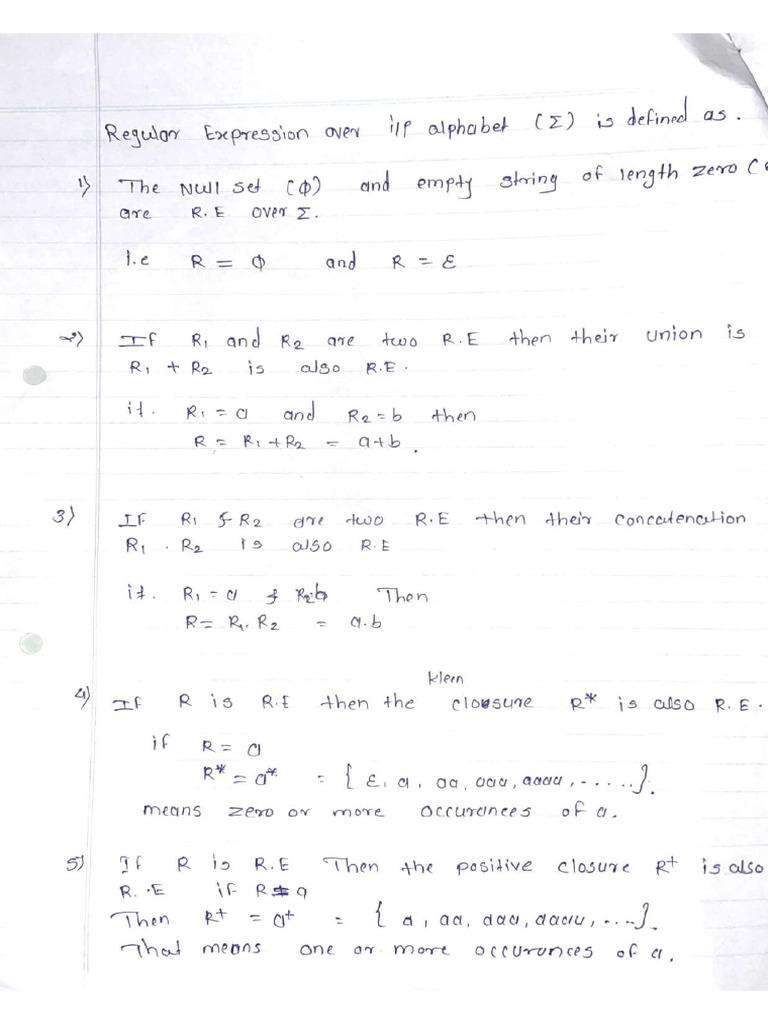 Regular Expression over i/p alphabet (Σ) is defined as.
1) The Null set (Φ) and empty string of length zero (
are R.E over Σ.
I.e R = Φ and R = ε
2) If R1 and R2 are two R.E then their union is
R1 + R2 is also R.E.
if. R1 = a and R2 = b then
R = R1 + R2 = a+b.
3) If R1 & R2 are two R.E then their concatenation
R1 . R2 is also R.E
if. R1 = a & R2=b Then
R = R1. R2 = a.b
Kleen
4) If R is R.E then the closure R* is also R.E.
if R = a
R* = a* = { ε, a, aa, aaa, aaaa, - . . . . .}.
means zero or more occurances of a.
5) If R is R.E Then the positive closure R+ is also
R. .E if R = a
Then R+ = a+ = { a, aa, aaa, aaaa, ....}.
That means one or more occurances of a.